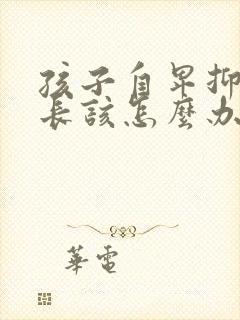 孩子自卑抑
長該怎麼办
華電